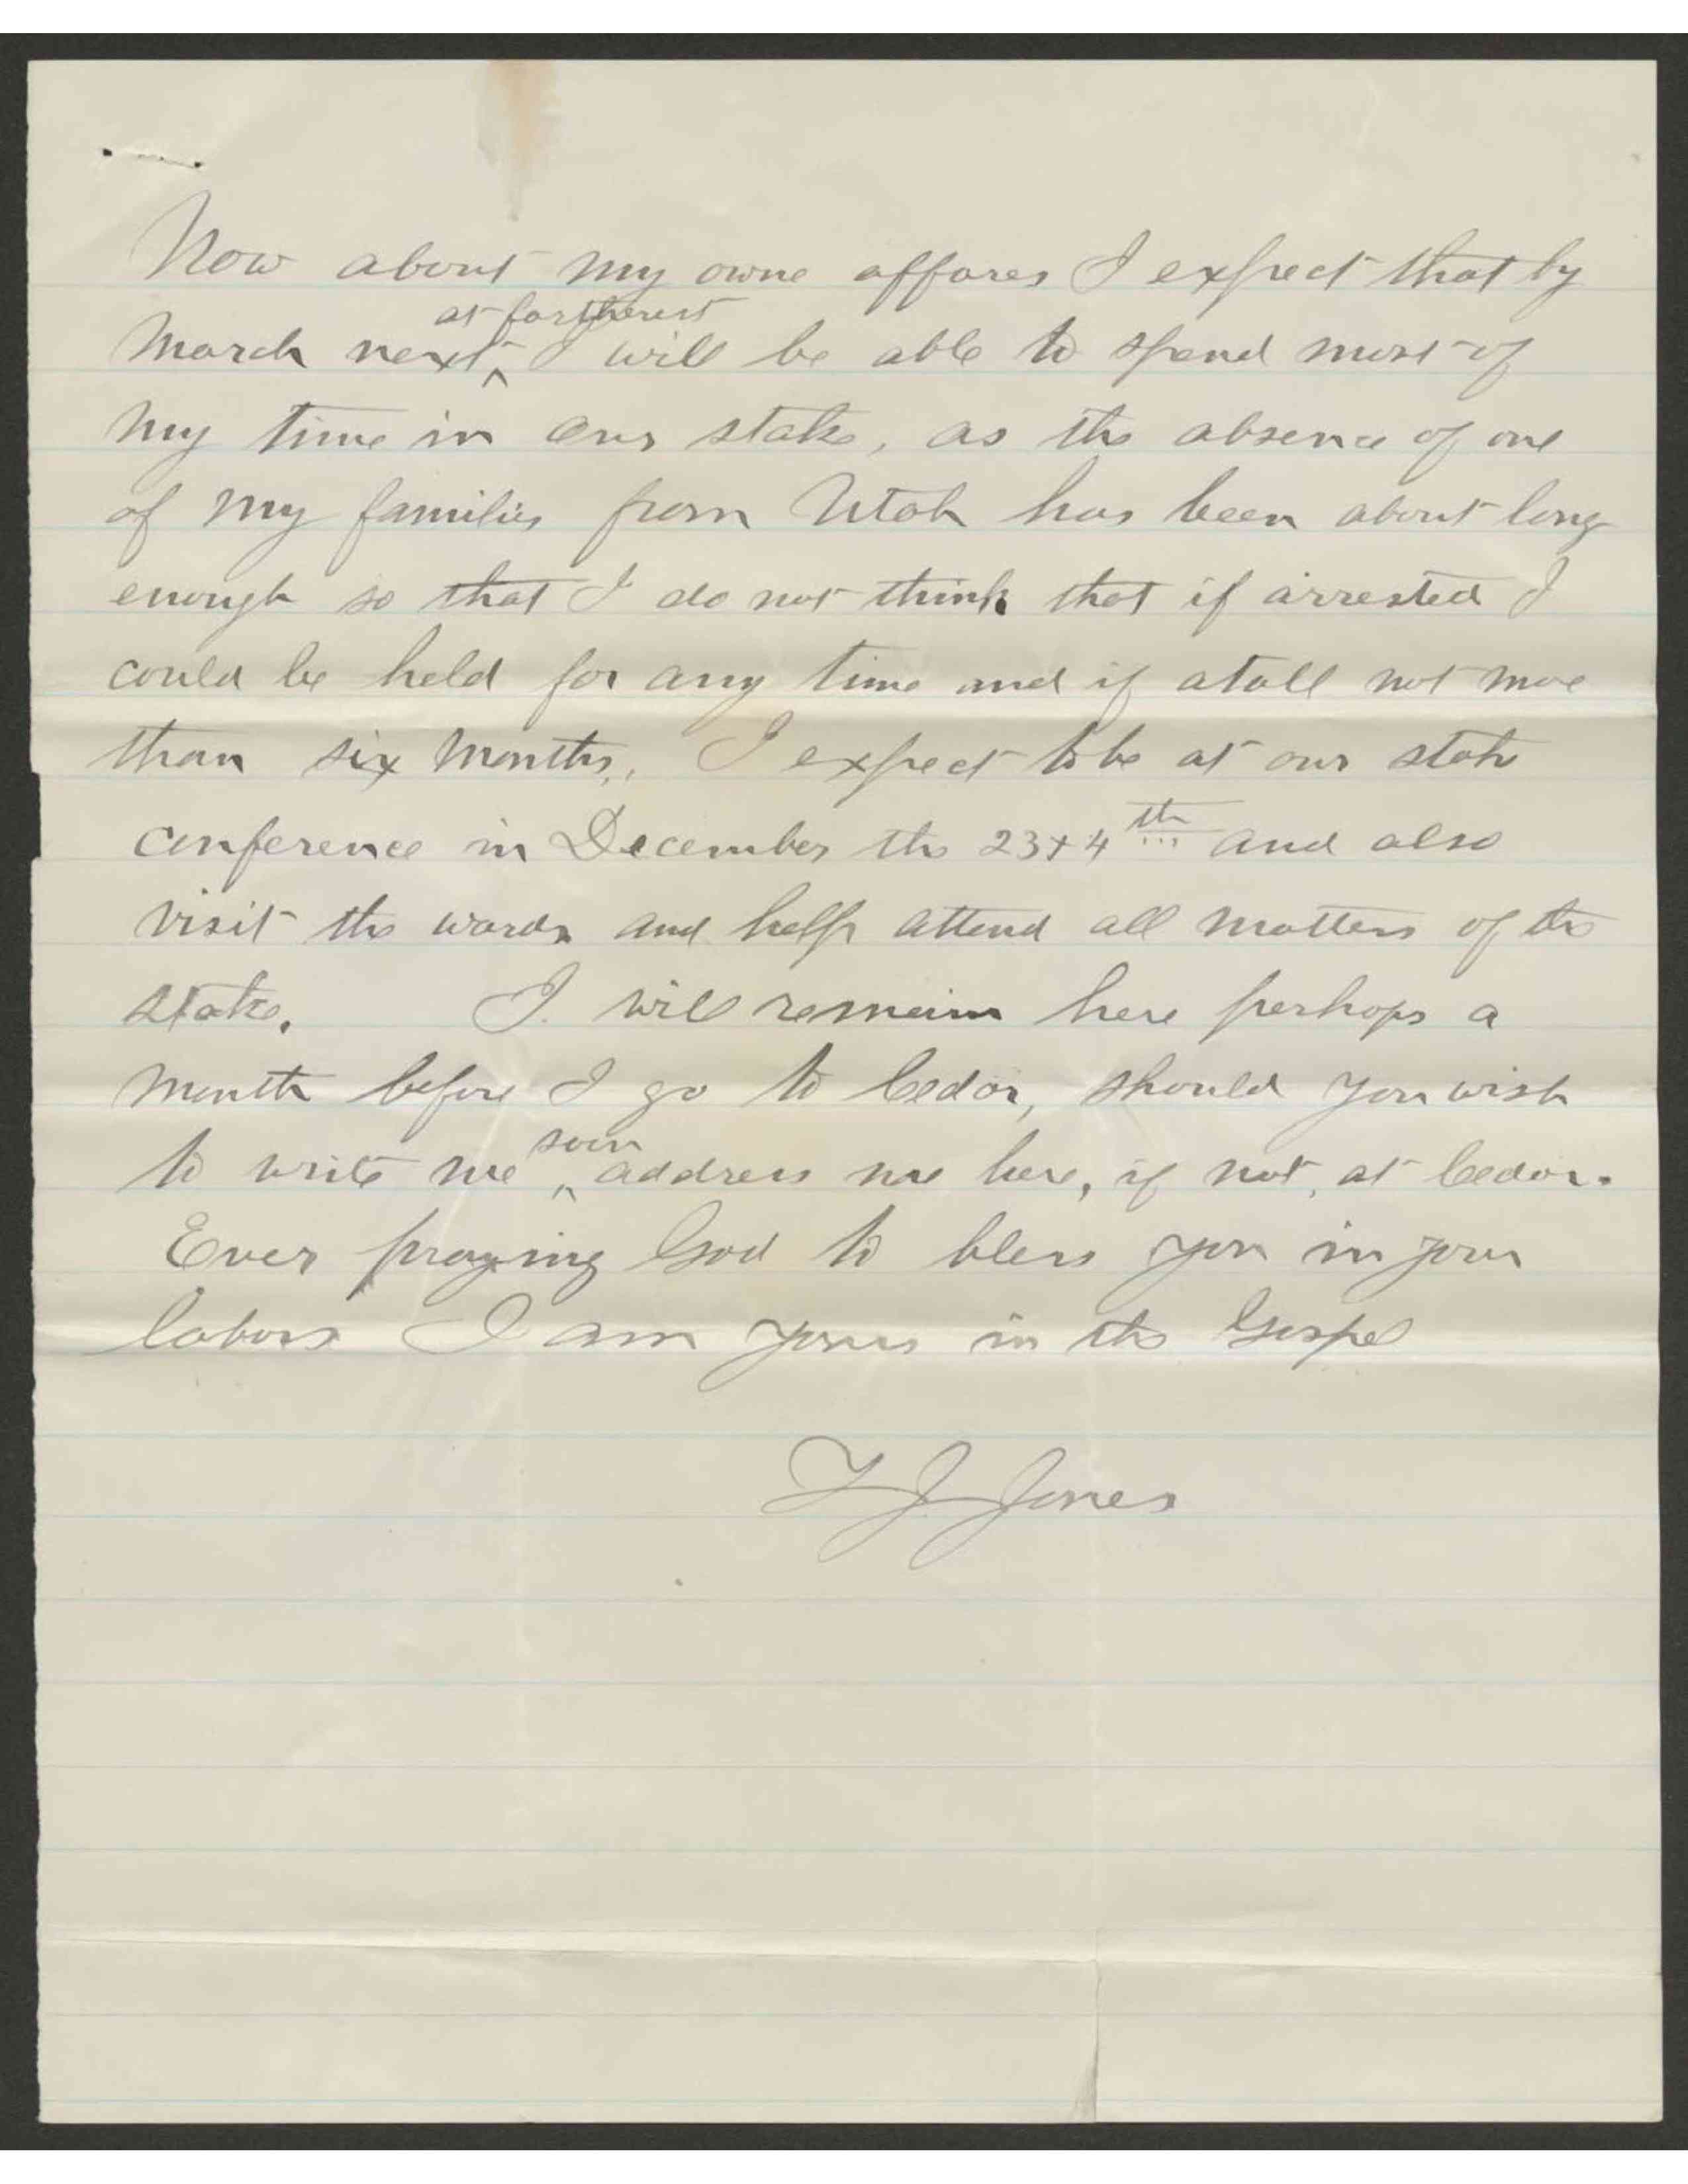 Now about my owne affares I expect that by
at fartherest
March next ^ I will be able to spend most of
my time in our stake, as the absence of one
of my families from Utah has been about long
enough so that I do not think that if arrested I
could be held for any time and if atall not more
than six months, I expect to be at our stake
conference in December the 23 + 4th and also
visit the wards and help attend all matters of the
stake. I will remain here perhaps a
month before I go to Cedar, should you wish
soon
to write me ^ address me here, if not, at Cedar.
Ever praying God to bless you in your
labors I am yours in the Gospel
T J Jones